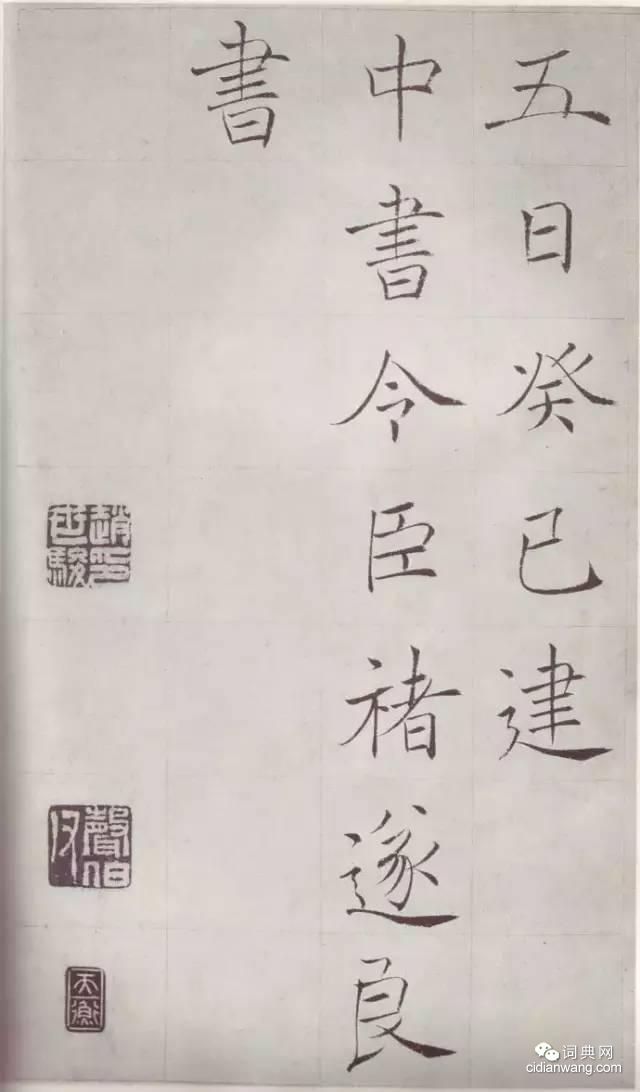 五日癸已建
中書令臣褚遂良
書
趙世駿印
聲伯
天衡
词典网
cidianwang.com